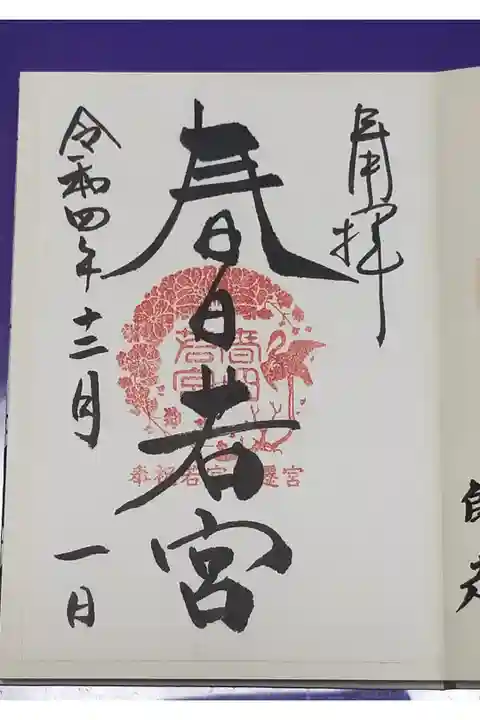 奉拝
春日若宮
春日
若宮
奉祝若宮
遷宮
令和四年十二月
一日